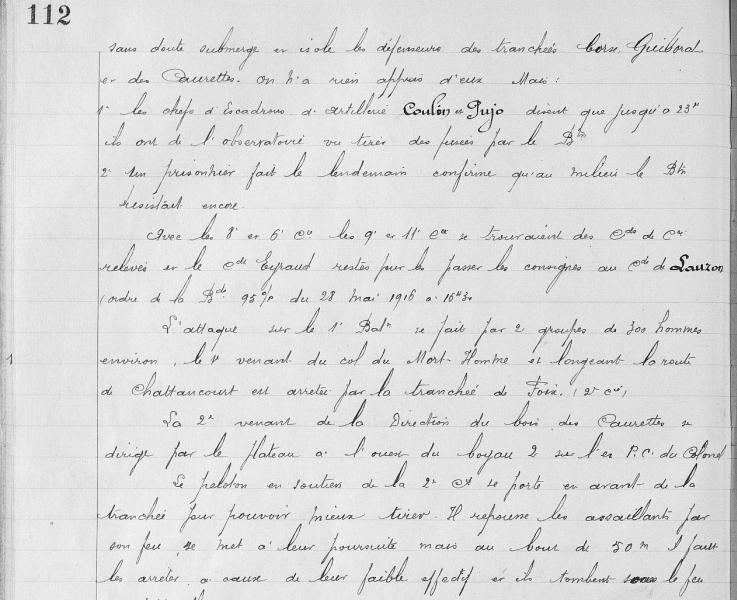 112
sans doute submergé et isolé les défenseurs des tranchées Corse, Guiborat
et des Caurettes. On n'a rien appris d'eux Mais :
1° les chefs d'Escadrons d'artillerie Coulon et Pujo disent que jusqu'à 23h
ils ont de l'observatoire vu tirer des fusées par le Btn
2° un prisonnier fait le lendemain confirme qu'au milieu le Btn
résistait encore.
Avec les 8e et 6e Cies les 9e et 11e Cies se trouvaient des Cdts de Cie
relevés et le Cdt Eyraud restés pour les passer les consignes au Cdt de Lauzon
(ordre de la Bde 95 du 28 mai 1916 à 16h30
L'attaque sur le 1er Batn se fait par 2 groupes de 300 hommes
1
environ, le 1er venant du col du Mort-Homme et longeant la route
de Chattancourt est arrêtée par la tranchée de Foix. (2e Cie)
La 2e venant de la Direction du bois des Caurettes se
dirige par le plateau à l'ouest du boyau 2 sur l'ex P.C. du Colonel
Le peloton en soutien de la 2e Cie se porte en avant de la
tranchée pour pouvoir mieux tirer. Il repousse les assaillants par
son feu, se met à leur poursuite mais au bout de 50m il faut
les arrêter à cause de leur faible effectif et ils tombent sous le feu